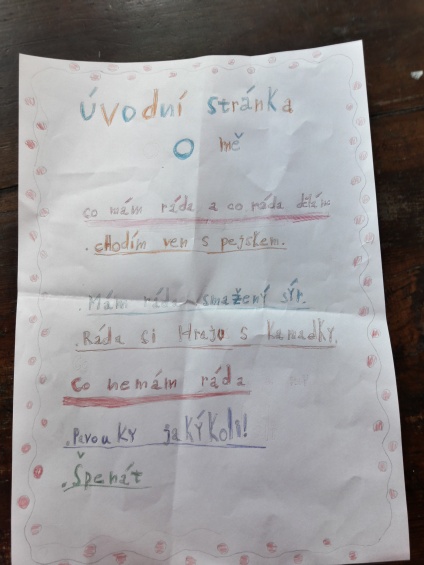 Úvodní stránka
O mě
co mám ráda a co ráda dělám
. chodím ven s pejskem.
. Mám ráda smažený sýr.
. Ráda si Hraju s kamadky.
Co nemám ráda
. Pavouky jakýkoli!
. Špenát